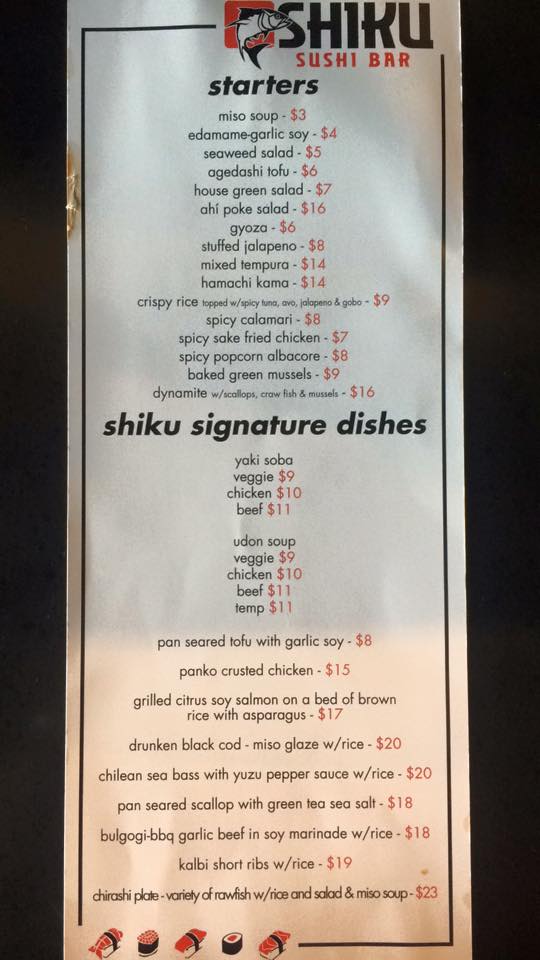 SHIKU
SUSHI BAR
starters
miso soup - $3
edamame-garlic soy - $4
seaweed salad - $5
agedashi tofu - $6
house green salad - $7
ahí poke salad - $16
gyoza - $6
stuffed jalapeno - $8
mixed tempura - $14
hamachi kama - $14
crispy rice topped w/spicy tuna, avo, jalapeno & gobo - $9
spicy calamari - $8
spicy sake fried chicken - $7
spicy popcorn albacore - $8
baked green mussels - $9
dynamite w/scallops, craw fish & mussels - $16
shiku signature dishes
yaki soba
veggie $9
chicken $10
beef $11
udon soup
veggie $9
chicken $10
beef $11
temp $11
pan seared tofu with garlic soy - $8
panko crusted chicken - $15
grilled citrus soy salmon on a bed of brown
rice with asparagus - $17
drunken black cod - miso glaze w/rice - $20
chilean sea bass with yuzu pepper sauce w/rice - $20
pan seared scallop with green tea sea salt - $18
bulgogi-bbq garlic beef in soy marinade w/rice - $18
kalbi short ribs w/rice - $19
chirashi plate - variety of rawfish w/rice and salad & miso soup - $23